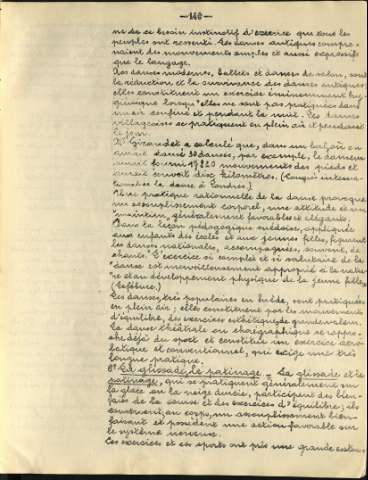 -140-
ne de ce besoin instinctif d'exercice que tous les
peuples ont ressenti. Les danses antiques compre-
naient des mouvements amples et aussi expressifs
que le langage.
Les danses modernes, ballets et danses de salon, sont
la réduction et la survivance des danses antiques
elles constituent un exercice éminemment hy-
giénique lorsqu'elles ne sont pas pratiquées dans
un air confiné et pendant la nuit. Les danses
villageoises se pratiquent en plein air et pendant
le jour.
Mr Giraudet a calculé que, dans un bal, où on
aurait dansé danses, par exemple, le danseur
aurait mouvements des pieds et
aurait kilomètres. (Congrès interna-
tional de la danse à Londres.)
Une pratique rationnelle de la danse provoque
un assouplissement corporel, une attitude et un
maintien, généralement favorables et élégants.
Dans la leçon pédagogique suédoise, appliquée
aux enfants des écoles et aux jeunes filles, figurent
les danses nationales, accompagnées, souvent, de
chants. L'exercice si complet et si salutaire de la
"danse est merveilleusement approprié à la natu-
re et au développement physique de la jeune fille,
(Lefébure.)
Les danses, très populaires en Suède, sont pratiquées
en plein air; elles constituent par les mouvements
d'équilibre, des exercices esthétiques de grande valeur.
La danse théâtrale ou chorégraphique se rappro-
che déjà du sport et constitue un exercice acro-
batique et conventionnel, qui exige une très
longue pratique.
La glissade, le patinage - La glissade et le
patinage, qui se pratiquent généralement sur
la glace ou la neige durcie, participent des bien-
faits de la course et des exercices d'équilibre; ils
conservent, au corps, un assouplissement bien-
faisant et possèdent une action favorable sur
le système nerveux.
Ces exercices et ces sports ont pris une grande exten